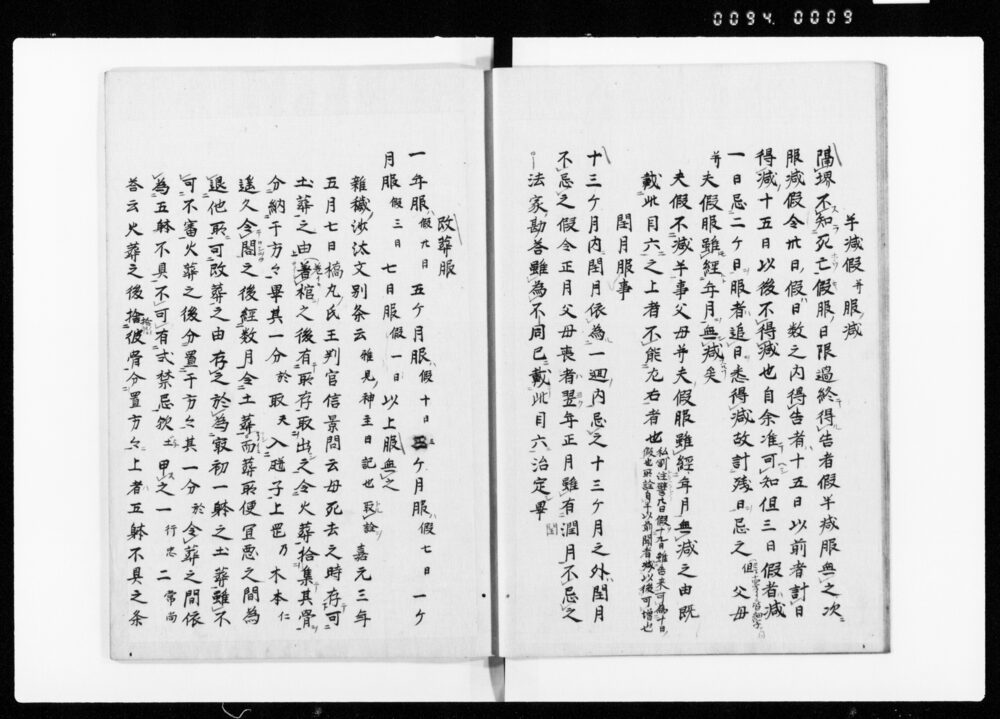 0094. 0009
半減假并服減
隔堺不知死亡假服日限過終得告者假半减服無之次
服减假令卅日假日数之内得告者十五日以前者計日
得减十五日以後不得减也自余准可知但三日假者减
一日忌二ケ日服者追日悉得减故計残日忌之但 父母
并夫假服雖經年月無减矣
夫假不减半事父母并夫假服雖經年月無减之由既
載此目六之上者不能左右者也
閏月服事
十三ケ月内閏月依為一廻内忌之十三ケ月之外閏月
不忌之假令正月父母喪者翌年正月雖有潤月不忌之
閏
法家勘答雖為不同已載此目六治定畢
改葬服
一年服假九日 五ケ月服假十日 三ケ月服假七日 一ケ
月服假三日 七日服假一日 以上服無之
雜穢沙汰文別条云雅見神主日記也取詮 嘉元三年
五月七日橘丸氏王判官信景問云母死去之時存可
土葬之由着棺之後有取存取出之令火葬拾集其骨
分納于方々畢其一分於取天入瓫子上邑乃木本仁
遙久令置之後經数月令土葬而葬取便宜悪之間為
退他取可改葬之由存之於為最初一躰之土葬雖不
可不審火葬之後分置于方々其一分於令葬之間依
為五躰不具不可有式禁忌欤 甲之一 行忠二常尚
答云火葬之後捨彼骨分置方々上者五躰不具之条